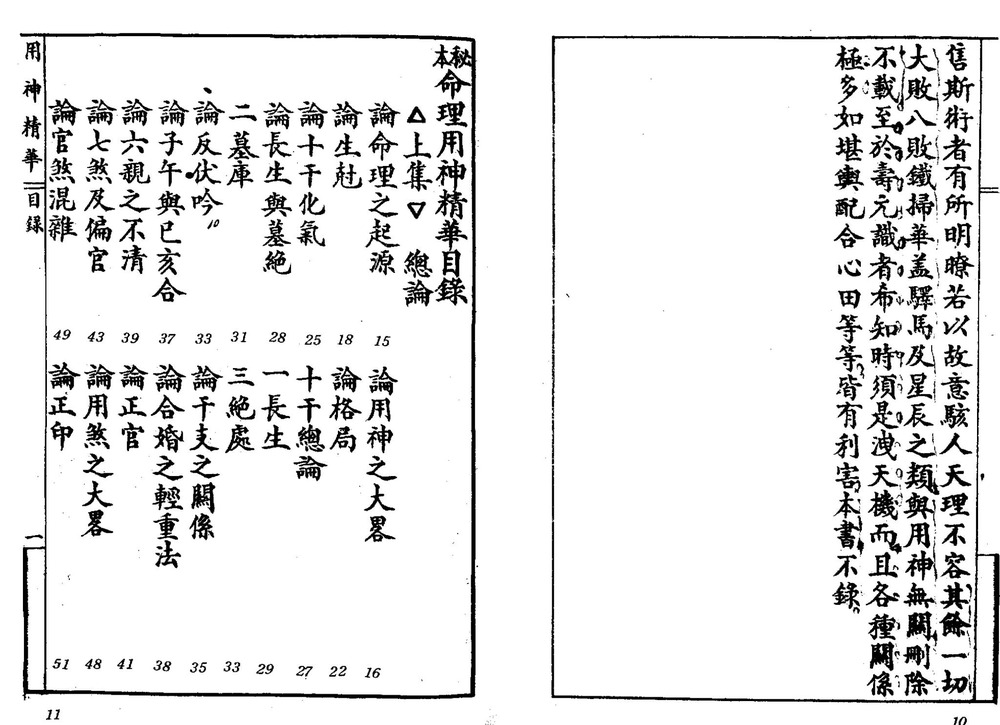 售斯術者有所明瞭若以故意駭人天理不容其餘一切
大敗八敗鐵掃華盖驛馬及星辰之類與用神無關刪除
不載至於壽元識者希知時須是洩天機而且各種關係
極多如堪輿配合心田等等皆有利害本書不錄
10
秘本命理用神精華目錄
△上集▽ 總論
論命理之起源 15 論用神之大畧 16
論生尅 18 論格局 22
論十干化氣 25 十干總論 27
論長生與墓絕 28 一長生 29
二墓庫 31 三絕處 33
論反伏吟 33 論干支之關係 35
論子午與巳亥合 37 論合婚之輕重法 38
論六親之不清 39 論正官 41
論七煞及偏官 43 論用煞之大畧 48
論官煞混雜 49 論正印 51
用神精華 目錄 一
11